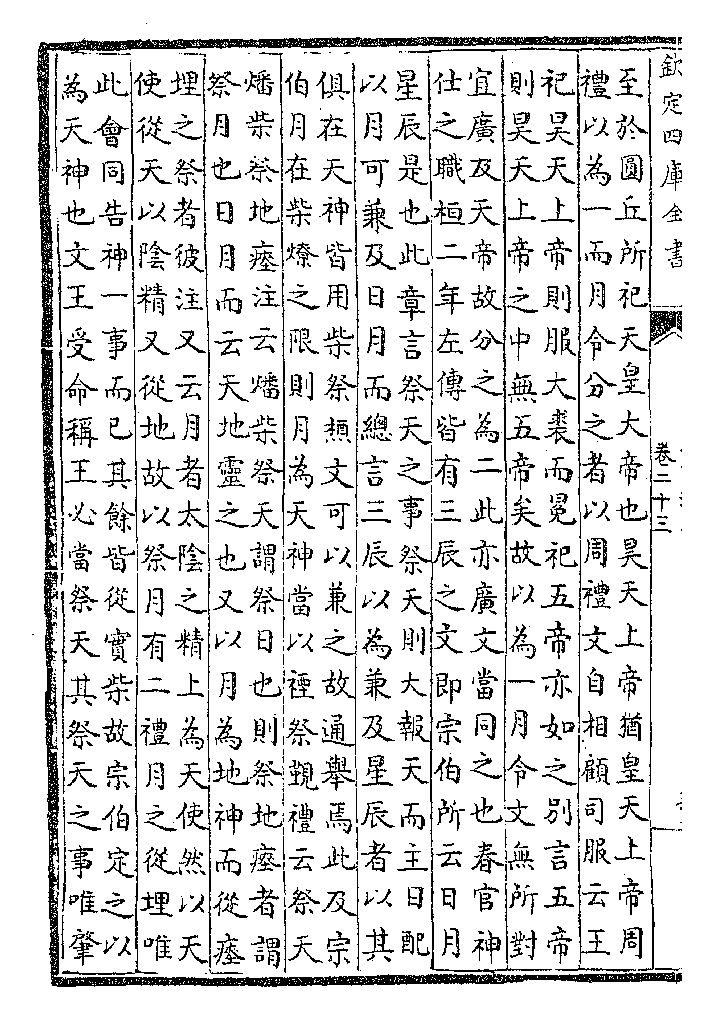 欽定四庫全書
卷二十三
至於圓丘所祀天皇大帝也昊天上帝猶皇天上帝周
禮以為一而月令分之者以周禮文自相顧司服云王
祀昊天上帝則服大裘而冕祀五帝亦如之别言五帝
則昊天上帝之中無五帝矣故以為一月令文無所對
宜廣及天帝故分之為二此亦廣文當同之也春官神
仕之職桓二年左傳皆有三辰之文即宗伯所云日月
星辰是也此章言祭天之事祭天則大報天而主日配
以月可兼及日月而總言三辰以為兼及星辰者以其
俱在天神皆用柴祭類文可以兼之故通舉焉此及宗
伯月在柴燎之限則月為天神當以禋祭覲禮云祭天
燔柴祭地瘞注云燔柴祭天謂祭日也則祭地瘞者謂
祭月也日月而云天地靈之也又以月為地神而從瘞
埋之祭者彼注又云月者太陰之精上為天使然以天
使從天以陰精又從地故以祭月有二禮月之從埋唯
此會同告神一事而已其餘皆從實柴故宗伯定之以
為天神也文王受命稱王必當祭天其祭天之事唯肇